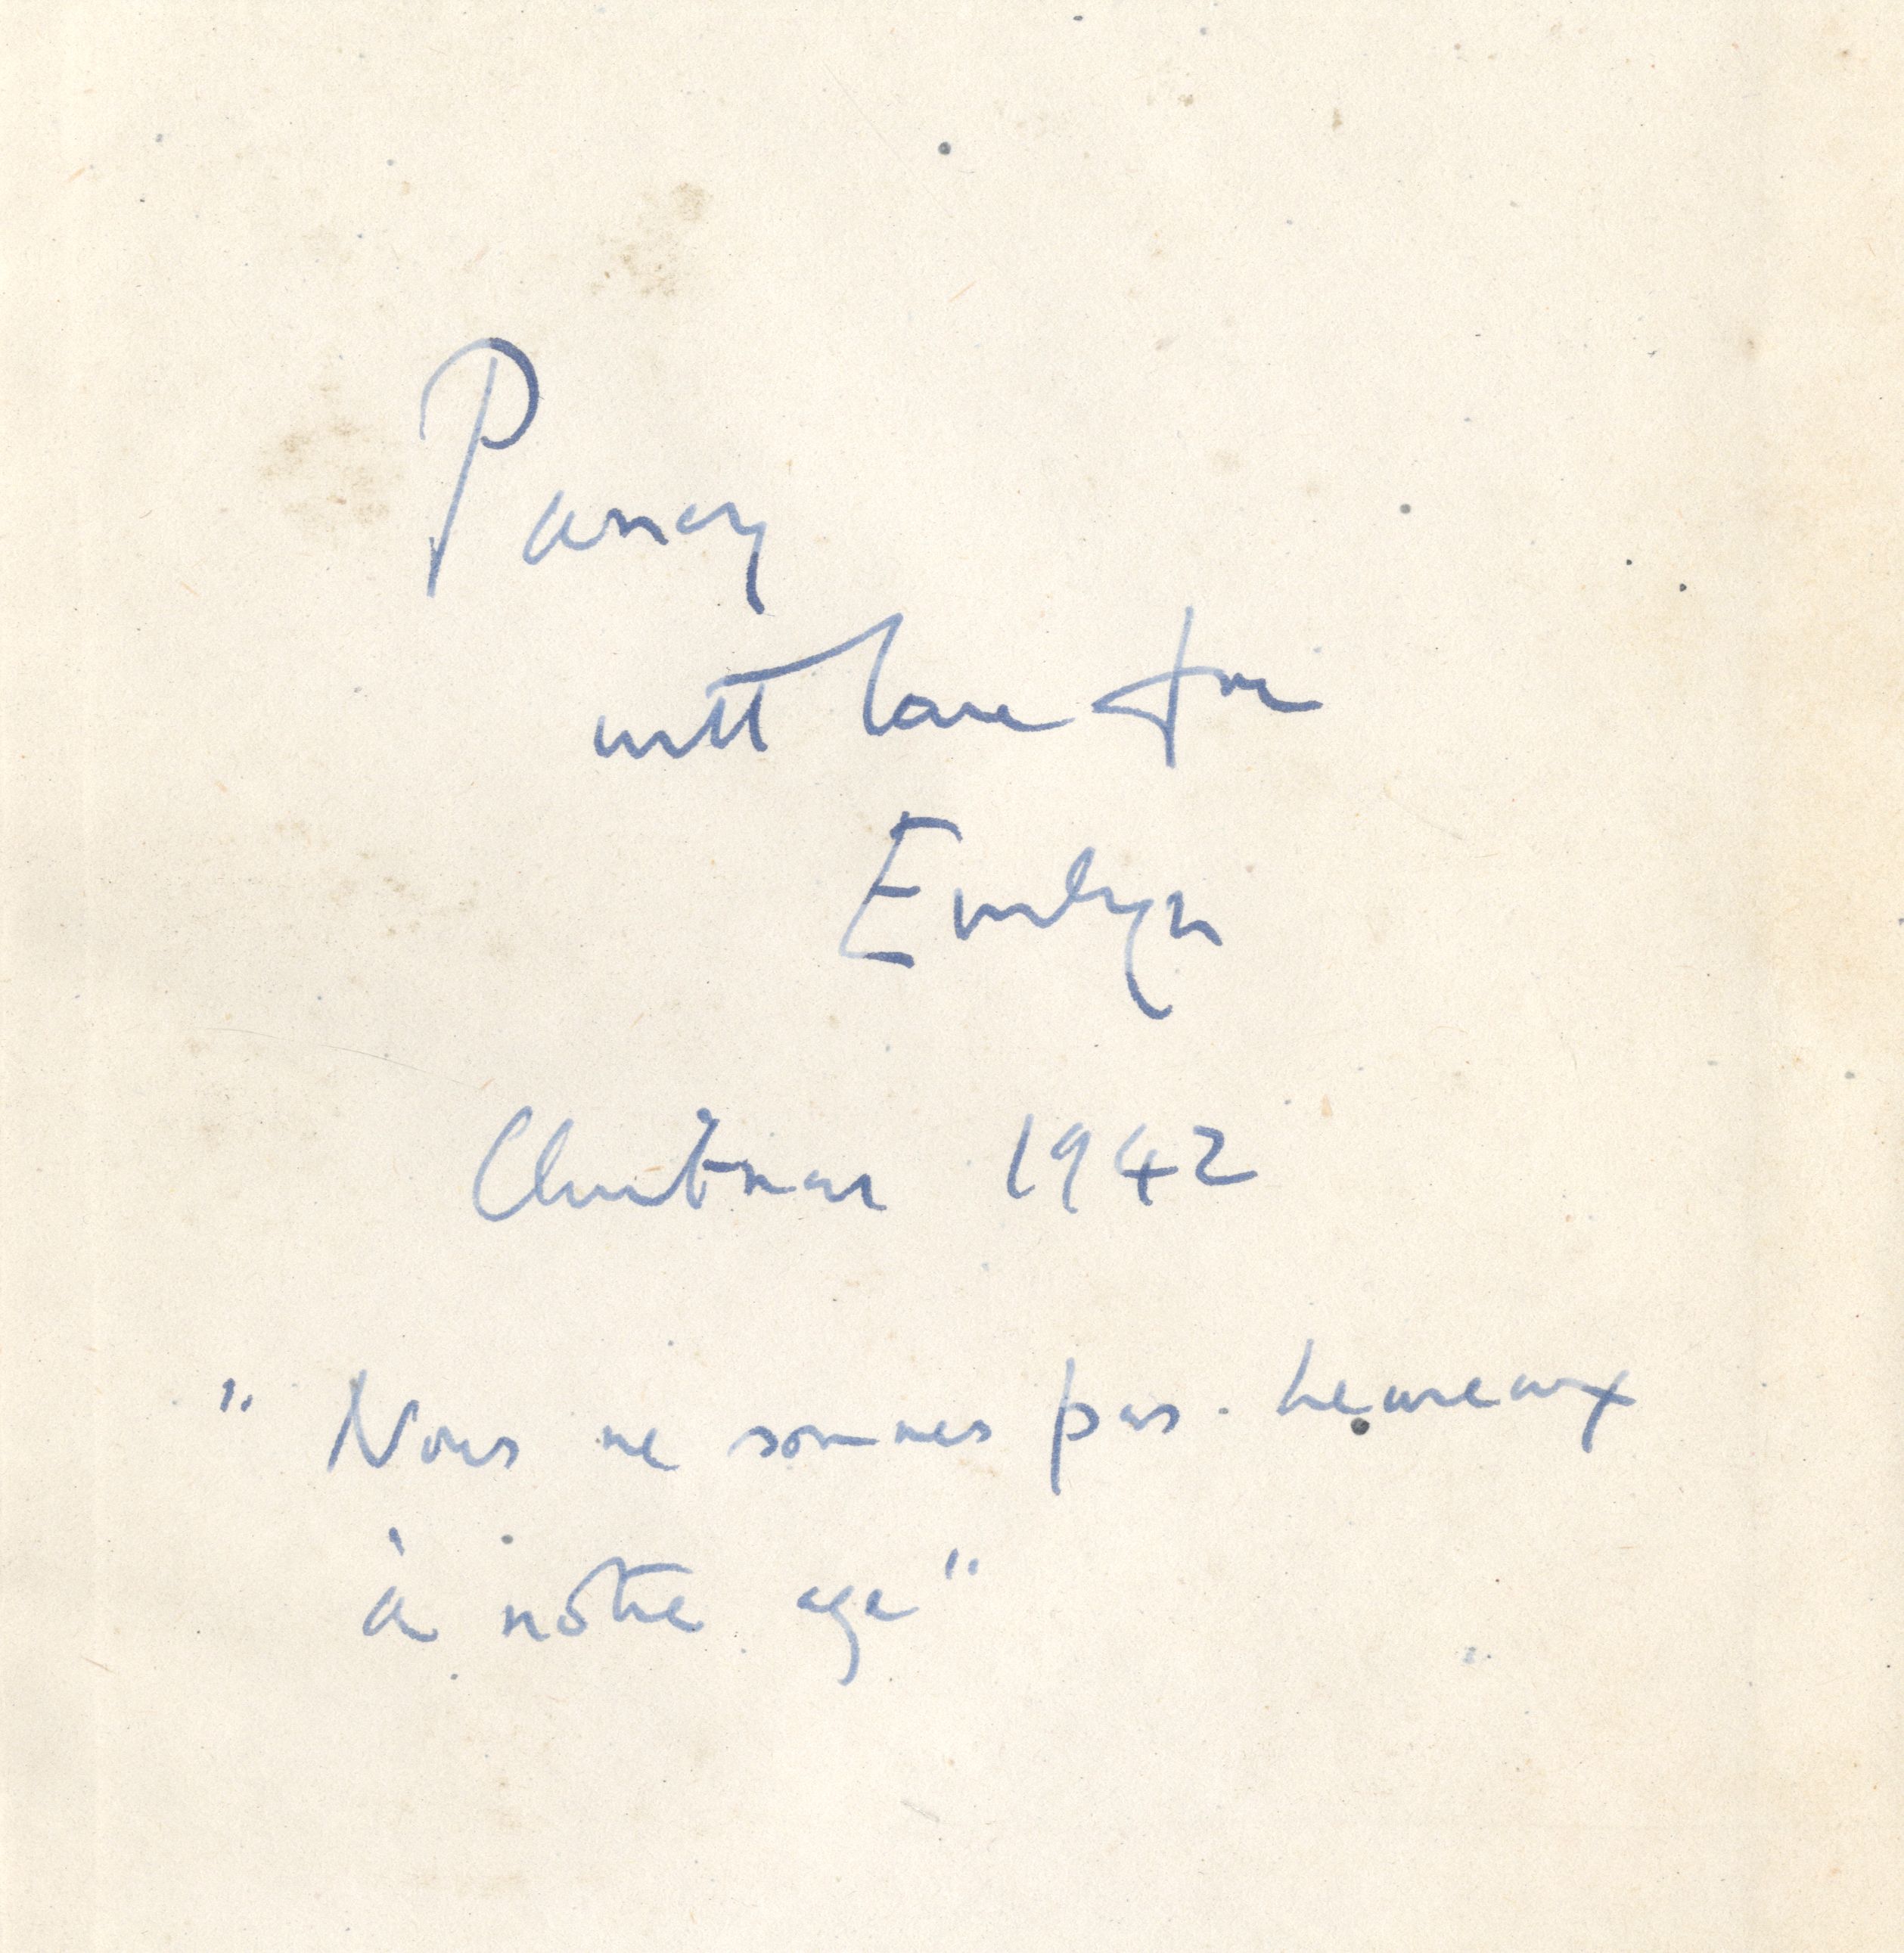 Pansy
with love from
Evelyn
Christmas 1942
" Nous ne sommes pas heureux
à nôtre age "